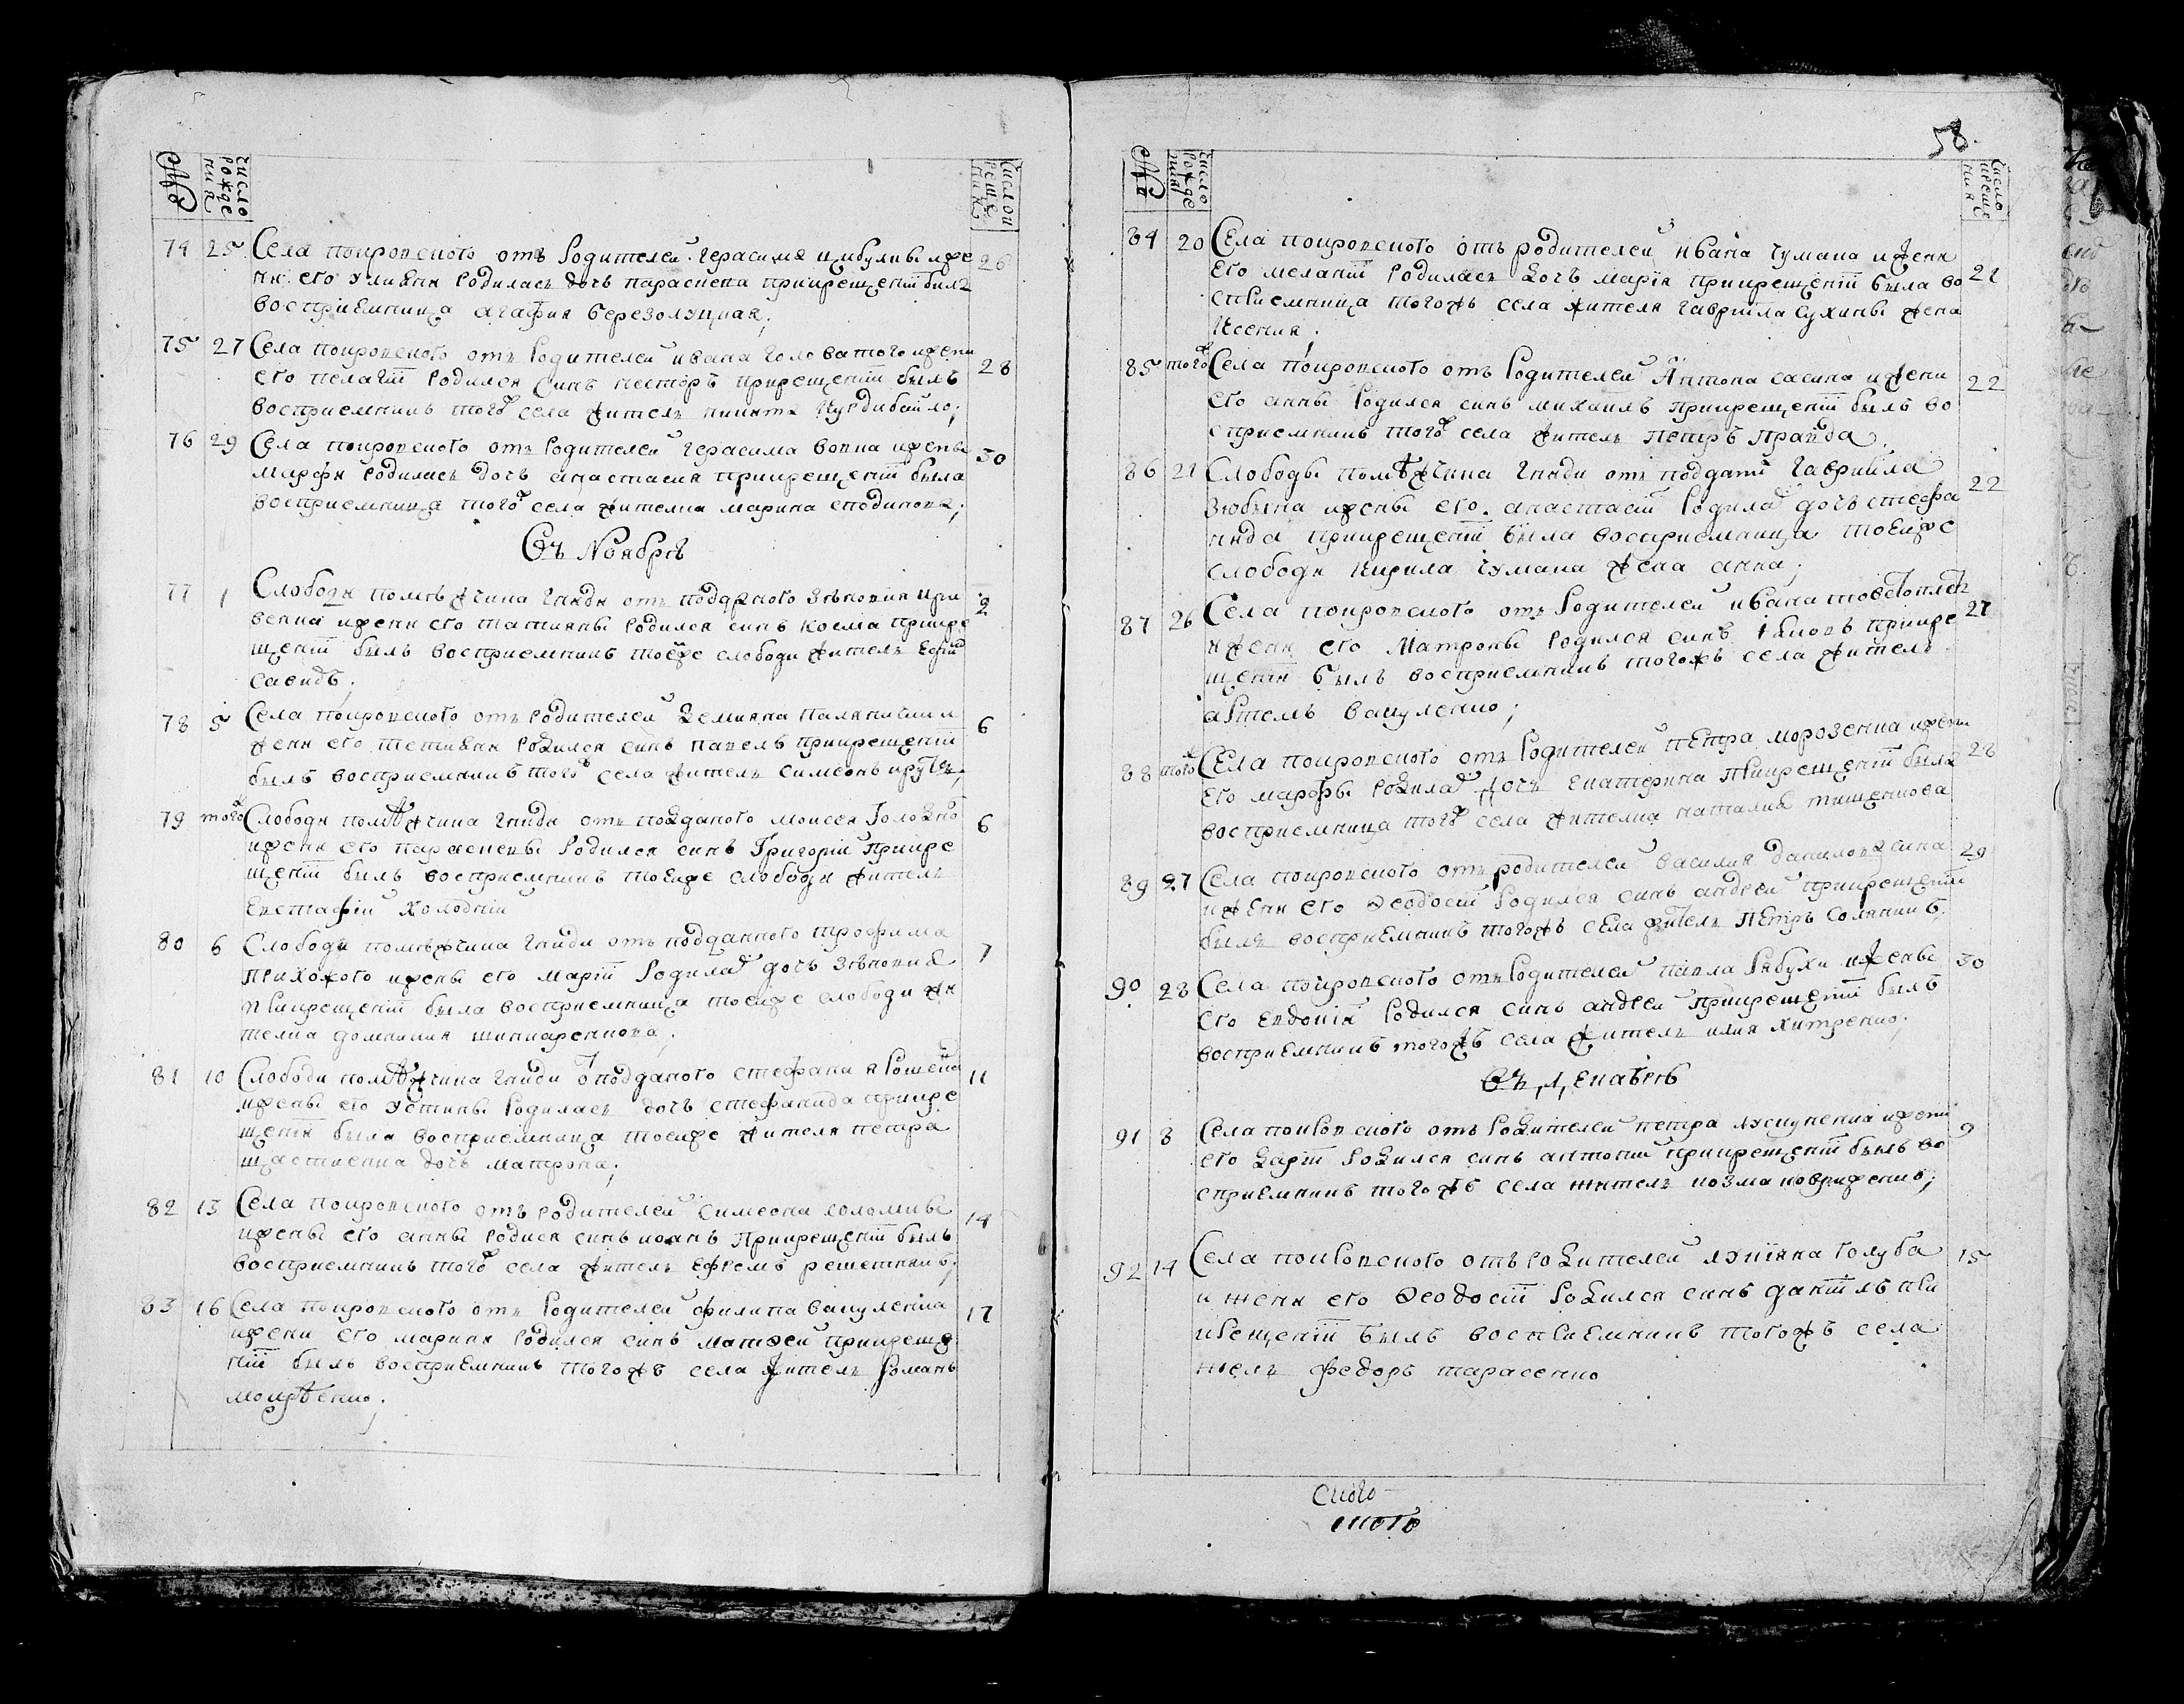 № число рожде ния число крещения
74 25 Села покровского отъ Родителей герасима цибулки и же 26
ни его улияни Родилась дочь параскева прикрещеніи била
восприемница агафия березолуцкая;
75 27 Села покровского отъ Родителей ивана головатого и жени 28
его пелагіи Родился Синъ несторъ прикрещеніи былъ
восприемникъ тогож села житель никита Курдибайло;
76 29 Села покровского отъ Родителей герасима вовка и жены 30
марфи Родилась дочь анастасия прикрещеніи была
восприемница тогож села жителка марина
Въ Ноябрѣ
77 1 Слободи помѣжчика гнѣди отъ подданого зѣновия 2
и жени его татияны Родился синъ косма прикре
щеніи былъ восприемникъ тоейже слободи житель
78 5 Села покровского отъ Родителей Демияна 6
жени его тетияни Родился синъ павелъ прикрещеніи
былъ восприемникъ тогож села житель симеонъ
79 тогож Слободи помѣжчика гнѣди отъ подданого моисея 6
и жени его параскевы Родился синъ Григорій Прикре
щеніи былъ восприемникъ тоейже слободи житель
Евстафій Холодній
80 6 Слободи помѣжчика гнѣди отъ подданного трофима 7
прихожого и жены его маріи Родилас дочь зѣновия
прикрещеніи была восприемница тоейже слободи жи
телка домникия шинкаренкова;
81 10 Слободи помѣжчика гнѣди от подданого стефана 11
и жены его устины Родилась дочь стефанида прикре
щеніи была восприемница тоейже жителя петра
дочь матрона;
82 13 Села Покровского отъ родителей Симеона соломики 14
и жены его анны Родися синъ иоанъ Прикрещеніи былъ
восприемникъ тогож села житель Ефремъ решетникъ;
83 16 Села покровского отъ Родителей филипа вакуленка 17
и жени его марини Родился синъ матѳей прикреще
ніи былъ восприемникъ тогожъ села житель Романъ
58.
№ число рожде ния число креще ния
84 20 Села покровского отъ родителей ивана чумака и жени 21
его меланіи Родилась дочь марія прикрещеніи была во
сприемница тогожъ села жителя гавриила Сухины жена
Ксения;
85 тогож Села покровского отъ Родителей Антона сасина и жени 22
его анны Родился синъ михаилъ прикрещеніи былъ во
сприемникъ тогож села житель Петръ Правда.
86 21 Слободы помѣжчика гнѣди отъ поддані гавриила 22
и жены его анастасіи Родилас дочь стефа
нида прикрещеніи была восприемница тоейже
слободи кирила чумака жена анна;
87 26 Села покровского отъ Родителей ивана 27
и жени его Матроны Родился синъ Іаковъ прикре
щеніи былъ восприемникъ тогожъ села житель
артемъ вакуленко;
88 тогож Села покровского отъ Родителей петра морозенка и жени 28
его марфы Родилас дочь Екатерина прикрещеніи была
восприемница тогож села жителка наталия тищенкова
89 27 Села покровского отъ родителей василия данилова сина 29
и жени его Ѳеодосіи Родился синъ андрей прикрещеніи
былъ восприемникъ тогожъ села житель Петръ Соляникъ.
90 28 Села покровского отъ Родителей павла Рябухи и жены 30
его евдокіи Родился синъ андрей прикрещеніи былъ
восприемникъ тогожъ села житель илия хитренко.
Въ Декабрѣ
91 8 Села покровского отъ Родителей петра и жени 9
его Даріи Родился синъ антоній прикрещеніи былъ во
сприемникъ тогожъ села житель козма
92 14 Села покровского отъ родителей лукіяна голуба 15
и жени его Ѳеодосіи Родился синъ даніилъ при
крещеніи былъ восприемникъ тогожъ села
федоръ тарасенко